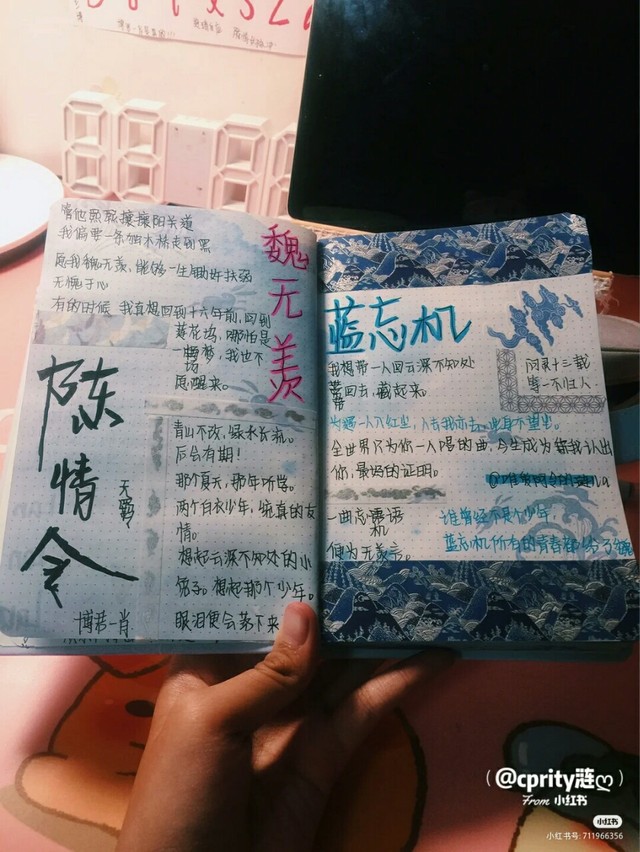 管他熙熙攘攘阳关道
我偏要一条独木桥走到黑
愿我魏无羡,能够一生锄奸扶弱
无愧于心
有的时候 我真想回到十六年前,回到
莲花坞,哪怕是
一场梦,我也不
愿醒来。
魏无羡
陈情令
天野
博君一肖
青山不改,绿水长流。
后会有期!
那个夏天,那年听学。
两个白衣少年,纯真的友
情。
想起云深不知处的小
兔子。想起那个少年。
眼泪便会落下来
蓝忘机
我想带一人回云深不知处
带回去,藏起来。
问灵十三载
等一不归人
为你一人入红尘,人去我亦去,此身不留尘。
全世界只为你一人唱的曲,今生成为
你,最好的证明。
一曲忘
机
便为无羡言。
谁曾经不是个少年
蓝忘机所有的青春都
@cprity涟
From 小红书
小红书
小红书号: 711966356